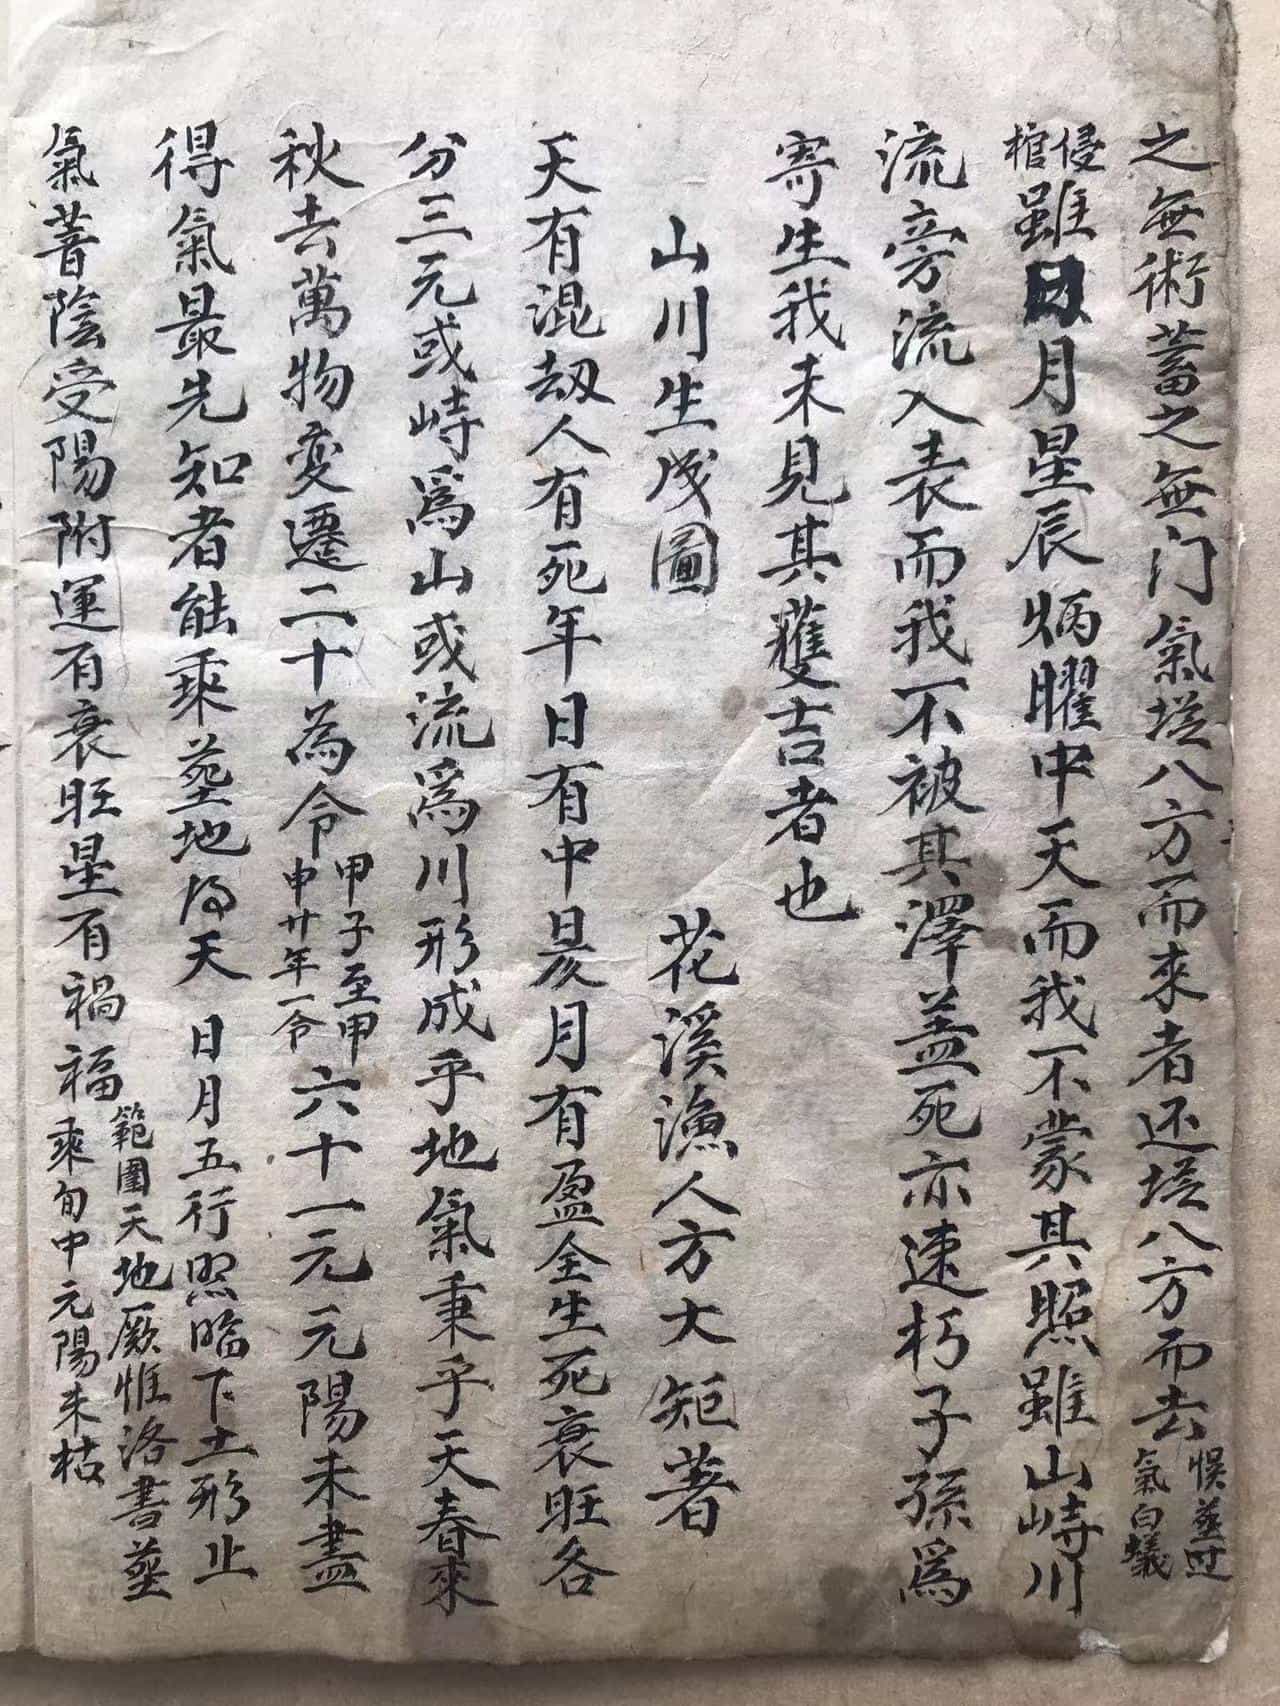 之無術蓄之無门氣塔八方而來者还塔八方而去悮塟过氣白蟻
侵棺雖日月星辰炳曜中天而我不蒙其照雖山峙川
流旁流入表而我不被其澤盖死亦速朽子孫爲
寄生我未見其獲吉者也
山川生成圖 花溪漁人方大矩著
天有混劫人有死年日有中昃月有盈全生死衰旺各
分三元或峙爲山或流爲川形成乎地氣秉乎天春來
秋去萬物变遷二十為令甲子至甲申廿年一令六十一元元陽未盡
得氣最先知者能乘塟地乃天日月五行照臨下土形止
氣蓄陰受陽附運有衰旺星有禍福範圍天地厥惟洛書塟乘旬中元陽未枯